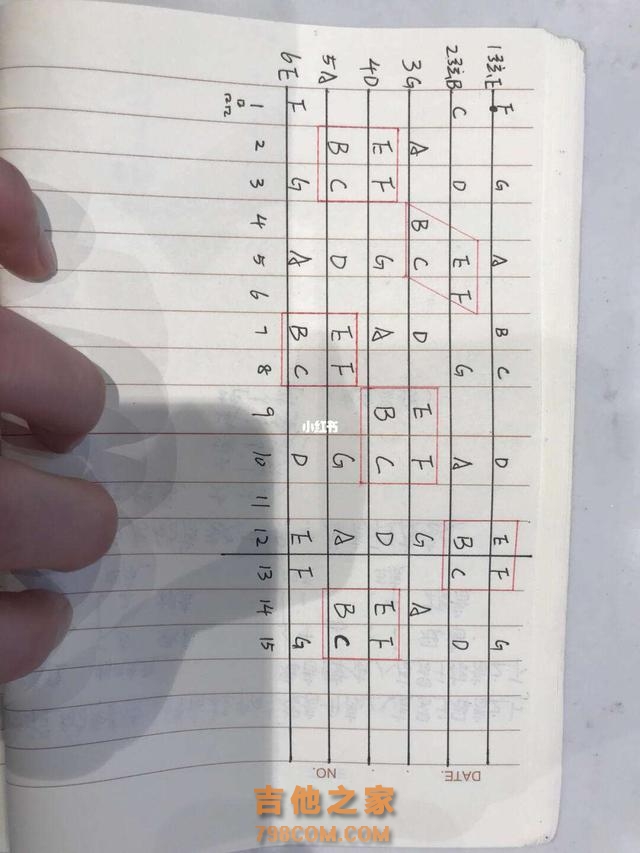 1弦E F G A B C D E F G
2弦B C D E F G A B C D
3G A B C D E F G A
4D E F G A B C D E F
5A B C D E F G A B C
6E F G A B C D E F G
1 2 3 4 5 6 7 8 9 10 11 12 13 14 15
品
DATE.
NO.
小红书
吉他之家
798COM.COM